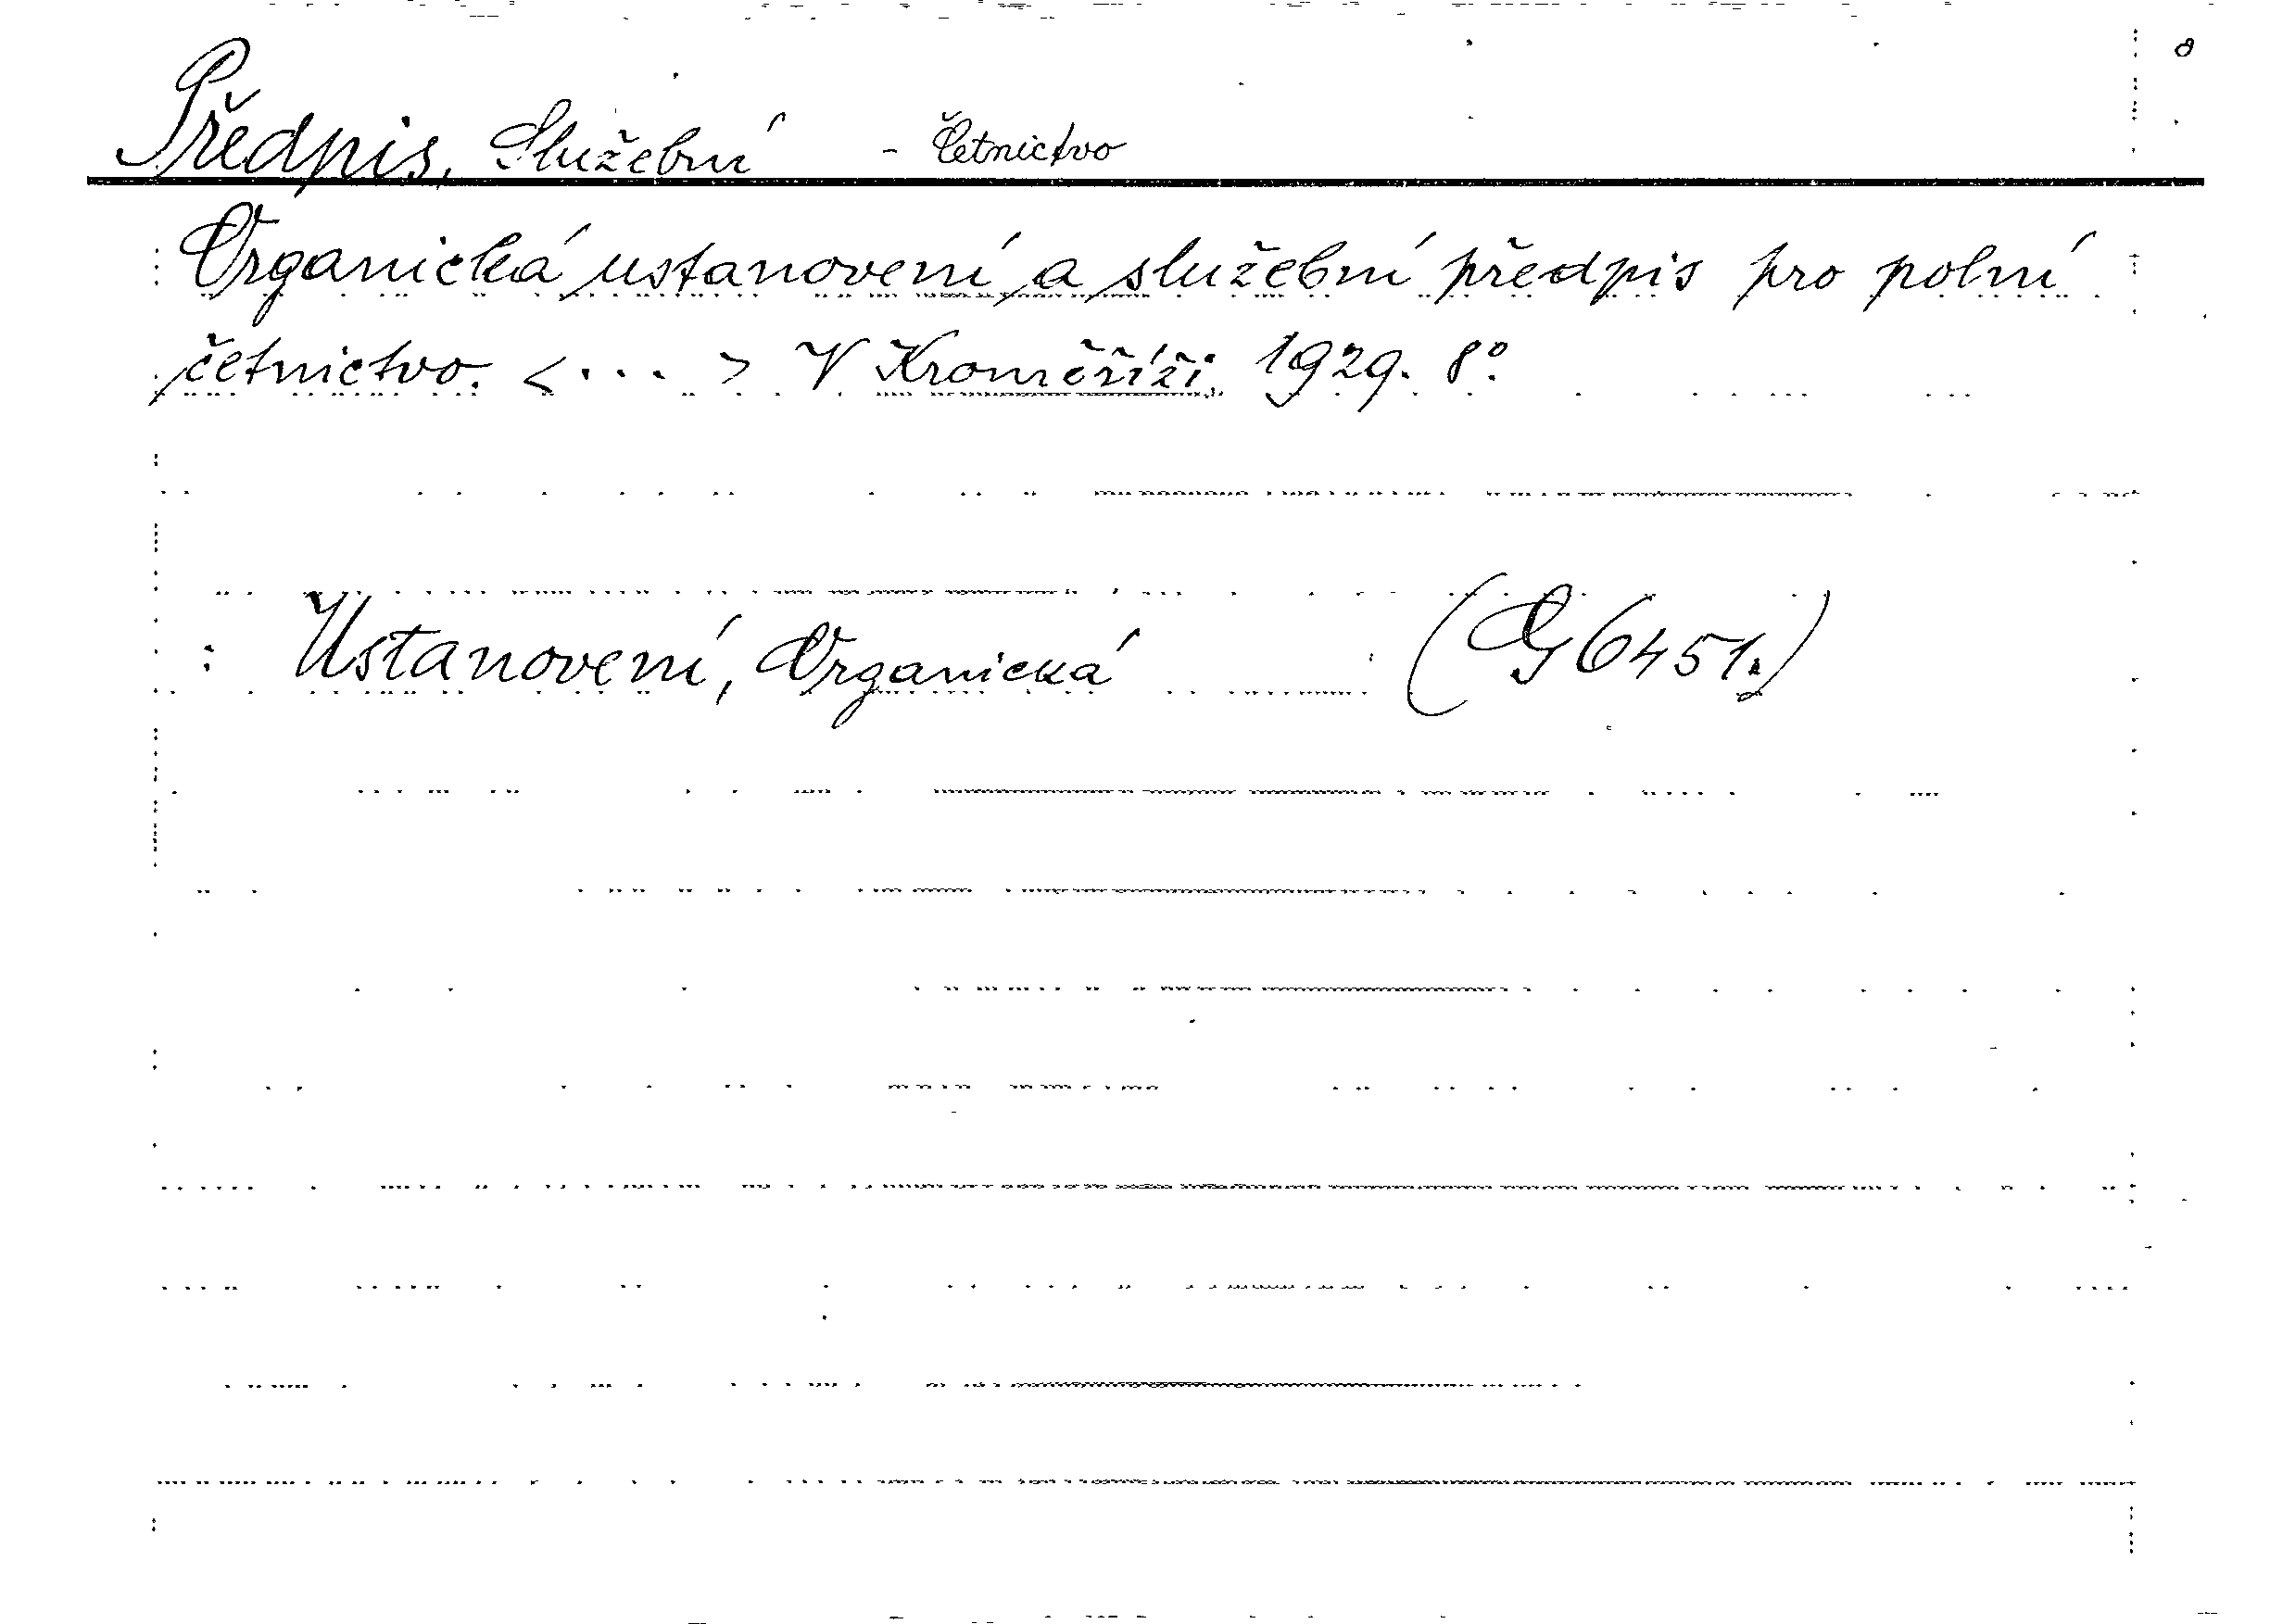 Předpis, Služební - četnictvo
Organická ustanovení a služební předpis pro polní
četnictvo. <...> V Kroměříži, 1929. 8°.
: Ustanovení, Organická (G 6451.)